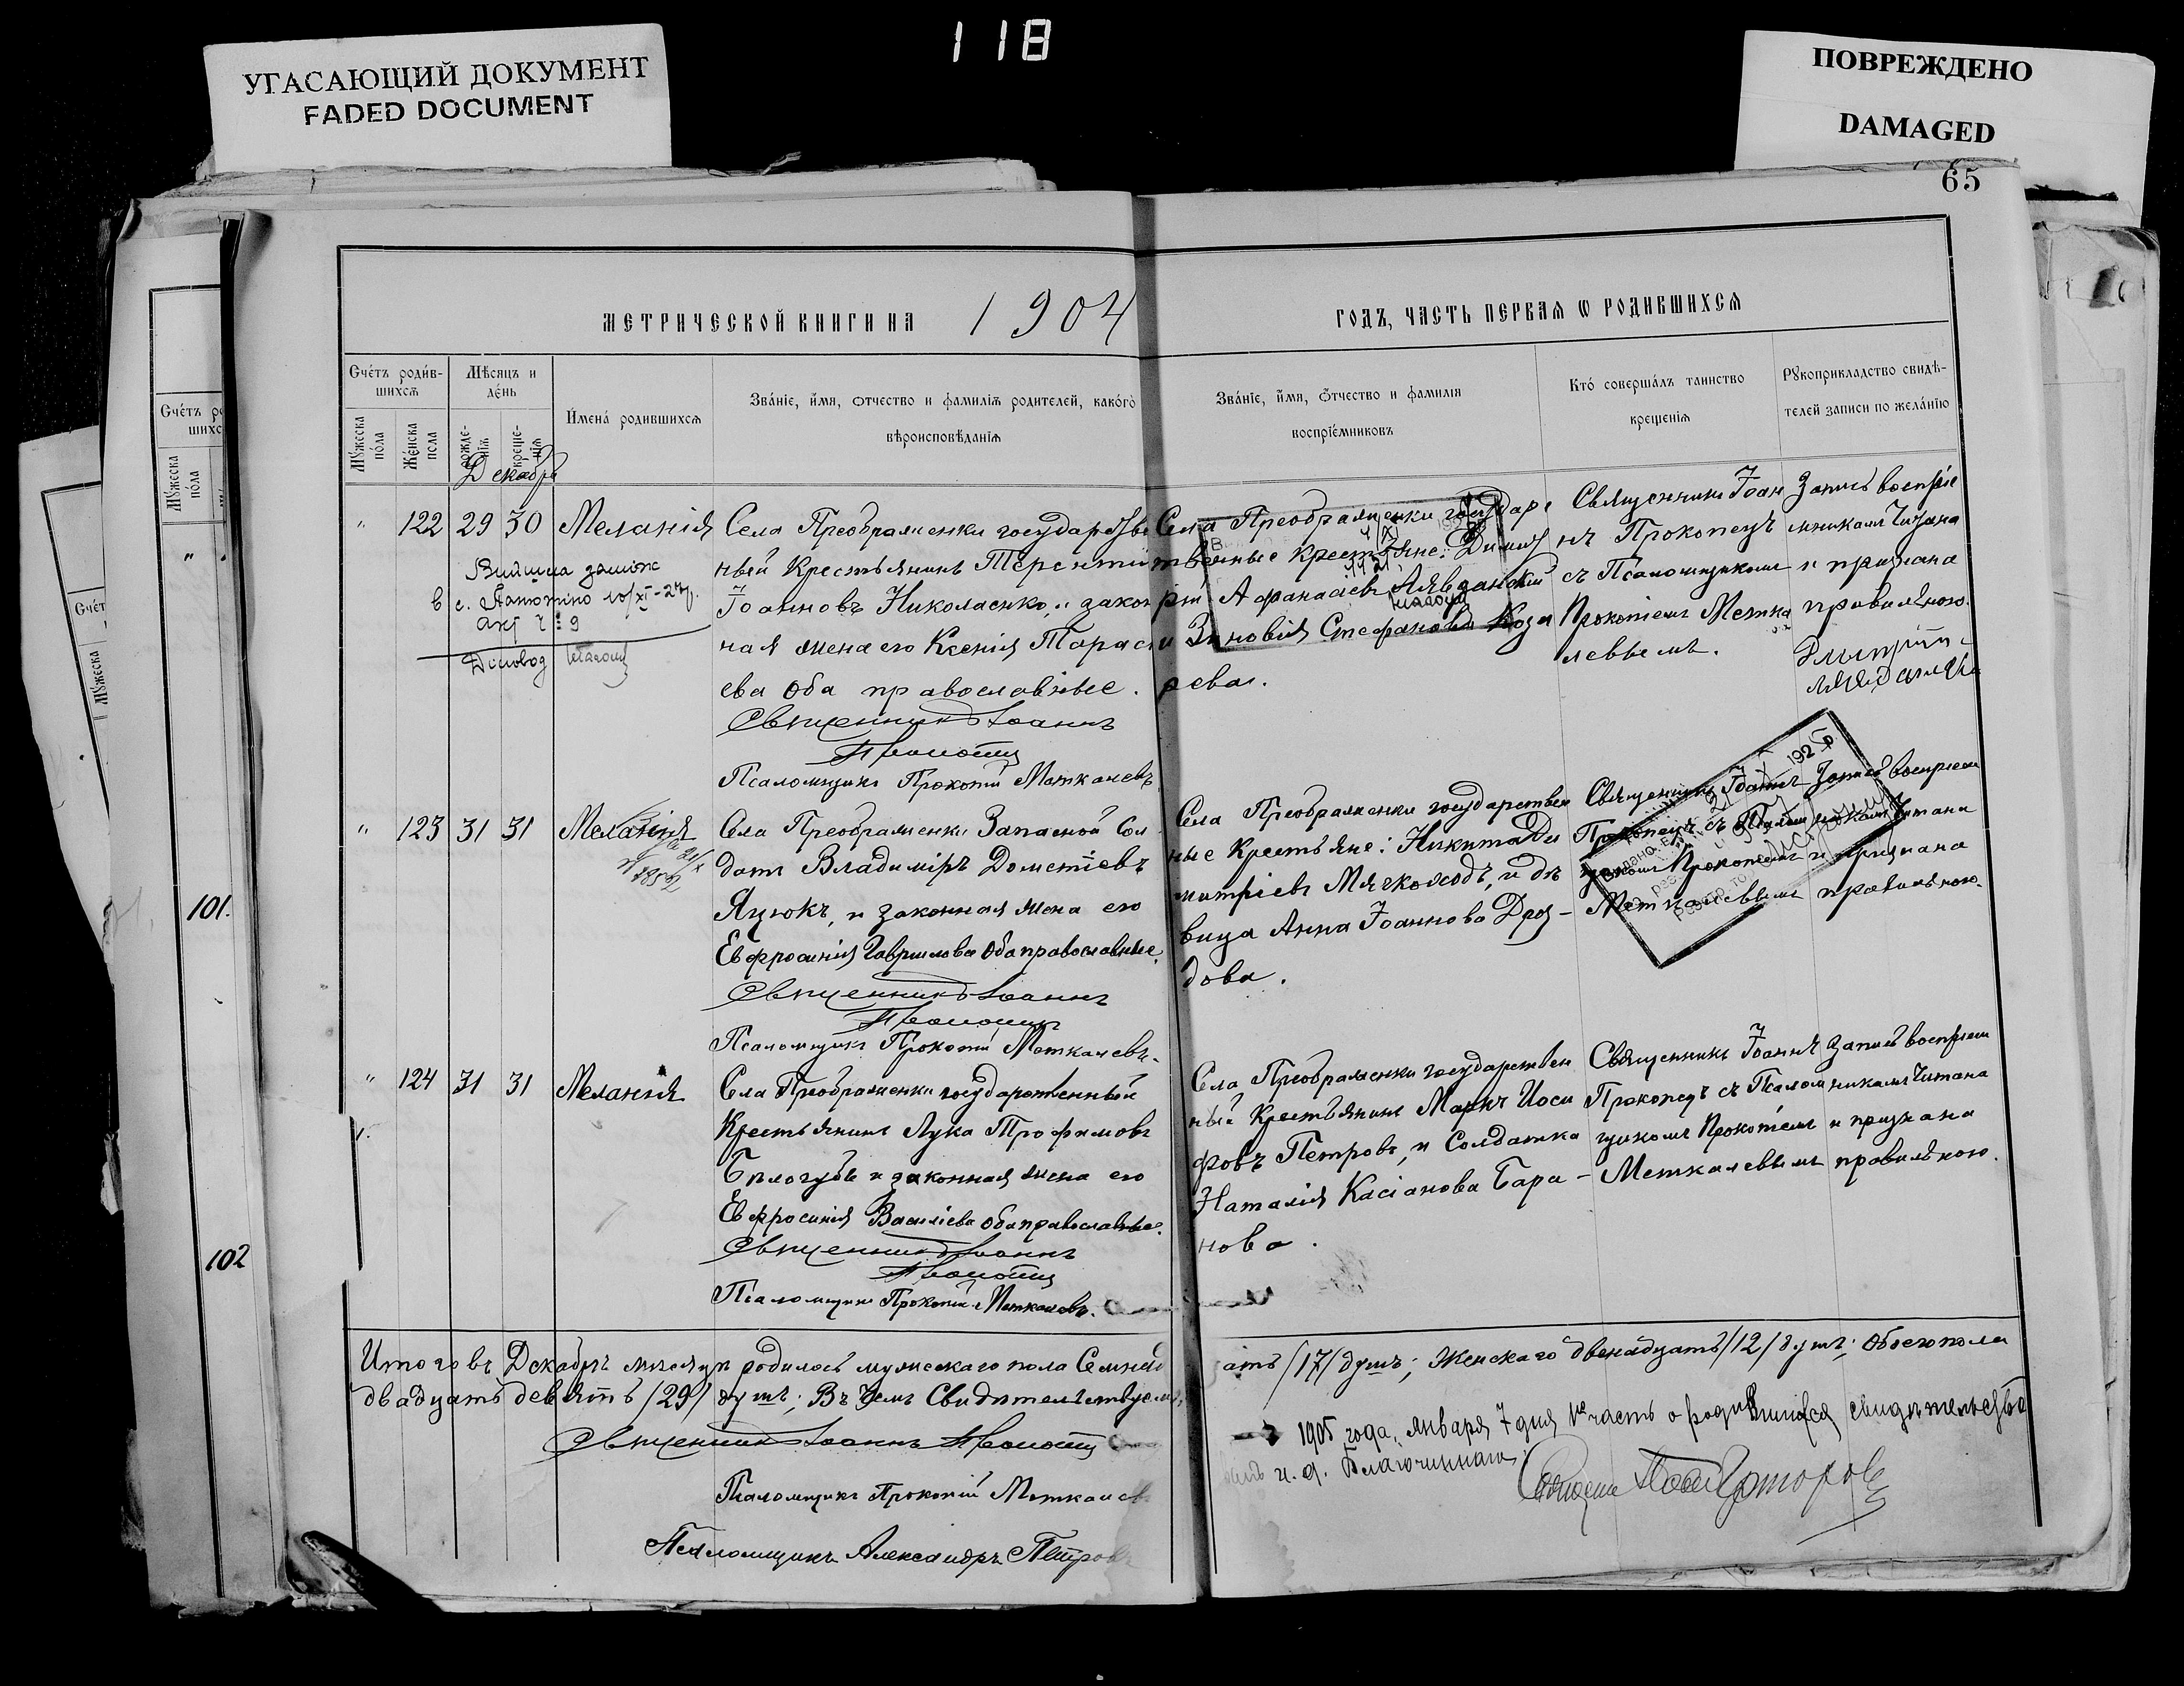 118
УГАСАЮЩИЙ ДОКУМЕНТ
FADED DOCUMENT
ПОВРЕЖДЕНО
DAMAGED
65
МЕТРИЧЕСКОЙ КНИГИ НА 1904 ГОДЪ, ЧАСТЬ ПЕРВАѦ Ѡ РОДИВШИХСѦ
Счéтъ роди́в-
шихсѧ
Мѣсяцъ и
де́нь
Мꙋжеска
по́ла
Же́нска
пола
рожде-
нїѧ
креще-
нїѧ
И́мена́ родившихсѧ
Зва́нїе, и́мѧ, ѻтчество и фамилїѧ родителей, како́гѡ
вѣроисповѣ́данїѧ
Зва́нїе, и́мѧ, ѻ́тчество и фамилїѧ
воспрїе́мниковъ
Кто́ соверша́лъ таинство
крещенїѧ
Рꙋкоприкладство свидѣ-
телей записи по жела́нїю
Декабрь
" 122 29 30 Меланія
Села Преображенки государстве
ный Крестьянинъ Терентій
Іоанновъ Николаенко, и закон
ная жена его Ксенія Тарасі
ева оба православные.
Священникъ Іоаннъ
Прокопец
Псаломщикъ Прокопій Меткалевъ
Села Преображенки государс
твенные крестьяне: Димит
рій Афанасіевъ
и Зиновія Стефанова Коза
рева.
Священникъ Іоан
нъ Прокопецъ
съ Псаломщикомъ
Прокопіемъ Метка
левымъ.
Запись воспріе
мникамъ читана
и признана
правильною.
Вийшла заміж
в с.
акт ч 9
Діловод
" 123 31 31 Меланія
Села Преображенки Запасной Сол
датъ Владиміръ Дометіевъ
Яцюкъ, и законная жена его
Евфросинія Гаврилова оба православные.
Священникъ Іоаннъ
Прокопец
Псаломщикъ Прокопій Меткалевъ.
Села Преображенки государствен
ные Крестьяне: Никита Ди
митріевъ Мячкоходъ, и дѣ
вица Анна Іоаннова Дроз-
дова.
Священникъ Іоаннъ
Прокопецъ съ Псалом
щикомъ Прокопіемъ
Меткалевымъ
Запись воспріем
никамъ Читана
и признана
правильною.
" 124 31 31 Меланія
Села Преображенки государственный
Крестьянинъ Лука Трофимовъ
Бѣлогубъ и законная жена его
Евфросинія Василіева оба православные.
Священникъ Іоаннъ
Прокопец
Псаломщикъ Прокопій Меткалевъ.
Села Преображенки государствен
ный Крестьянинъ Маркъ Иоси
фовъ Петровъ, и Солдатка
Наталія Касіанова Бара-
нова.
Священникъ Іоаннъ
Прокопецъ съ Псалом
щикомъ Прокопіемъ
Меткалевымъ
Запись воспріем
никамъ Читана
и признана
правильною.
Итого въ Декабрѣ мѣсяцѣ родилось мужескаго пола Семнад
цать /17/ душъ; Женскаго двенадцать /12/ душъ; Обоего пола
двадцать девять /29/ душъ; Въ чемъ Свидѣтельствуемъ,
Священникъ Іоаннъ Прокопец
Псаломщикъ Прокопій Меткалев
Псаломщикъ Александръ Петровъ
1905 года, января 7 дня 1ю часть о родившихся свидѣтельство
валъ и. д. Благочиннаго,
101.
102